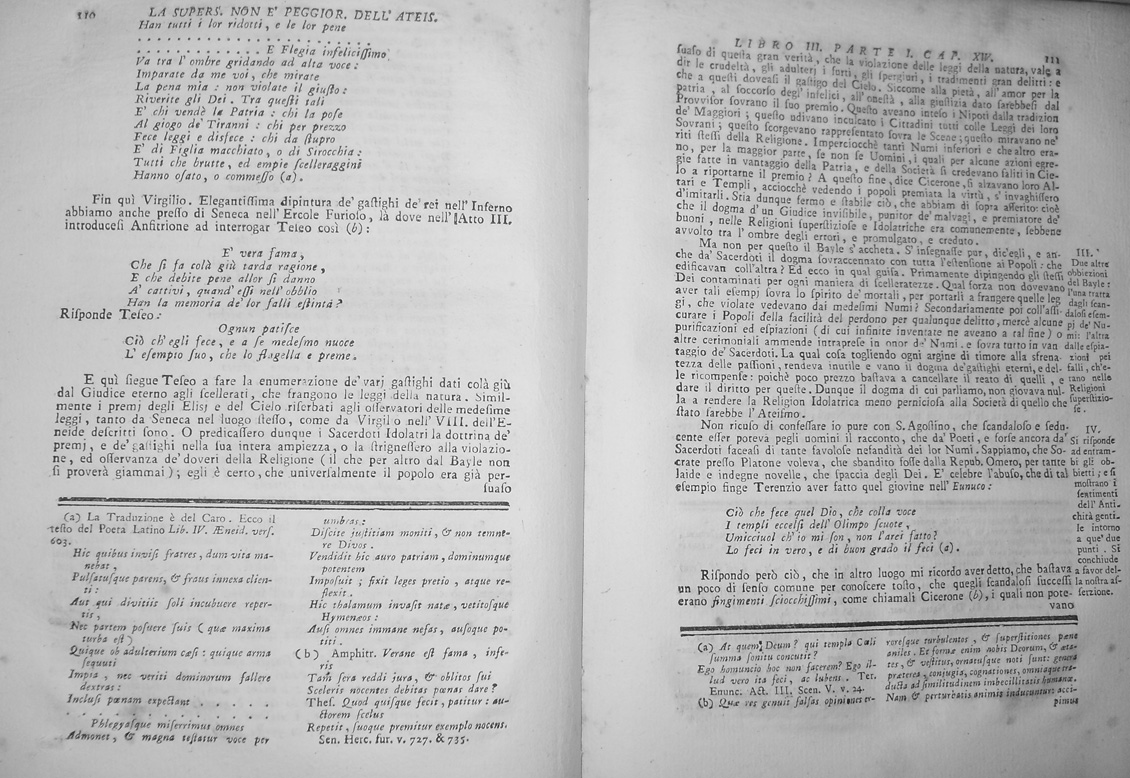 110
LA SUPERS. NON E' PEGGIOR. DELL' ATEIS.
Han tutti i lor ridotti, e le lor pene
. . . . . . . . . . . . . . . . . . . . .
. . . . . . . . . . . . E Flegia infeliciſſimo
Va tra l' ombre gridando ad alta voce:
Imparate da me voi, che mirate
La pena mia: non violate il giuſto:
Riverite gli Dei. Tra queſti tali
E' chi vendè la Patria: chi la poſe
Al giogo de' Tiranni: chi per prezzo
Fece leggi e disfece: chi da ſtupro
E' di Figlia macchiato, o di Sirocchia:
Tutti che brutte, ed empie ſcelleraggini
Hanno oſato, o commeſſo (a).
Fin quì Virgilio. Elegantiſſima dipintura de' gaſtighi de' rei nell' Inferno
abbiamo anche preſſo di Seneca nell' Ercole Furioſo, là dove nell' Atto III.
introduceſi Anfitrione ad interrogar Teſeo così (b):
E' vera fama,
Che ſi fa colà giù tarda ragione,
E che debite pene allor ſi danno
A' cattivi, quand' eſſi nell' obblìo
Han la memoria de' lor falli eſtintà?
Riſponde Teſeo:
Ognun patiſce
Ciò ch' egli fece, e a ſe medeſmo nuoce
L' eſempio ſuo, che lo flagella e preme.
E quì ſiegue Teſeo a fare la enumerazione de' varj gaſtighi dati colà giù
dal Giudice eterno agli ſcellerati, che frangono le leggi della natura. Simil-
mente i premj degli Eliſj e del Cielo riſerbati agli oſſervatori delle medeſime
leggi, tanto da Seneca nel luogo ſteſſo, come da Virgilio nell' VIII. dell' E-
neide deſcritti ſono. O predicaſſero dunque i Sacerdoti Idolatri la dottrina de'
premj, e de' gaſtighi nella ſua intera ampiezza, o la ſtrigneſſero alla violazio-
ne, ed oſſervanza de' doveri della Religione (il che per altro dal Bayle non
ſi proverà giammai); egli è certo, che univerſalmente il popolo era già per-
ſuaſo
(a) La Traduzione è del Caro. Ecco il
teſto del Poeta Latino Lib. IV. Æneid. verſ.
603.
Hic quibus inviſi fratres, dum vita ma-
nebat,
Pulſatuſque parens, & fraus innexa clien-
ti:
Aut qui divitiis ſoli incubuere reper-
tis,
Nec partem poſuere ſuis (quæ maxima
turba eſt)
Quique ob adulterium cæſi: quique arma
ſequuti
Impia, nec veriti dominorum fallere
dextras:
Incluſi pœnam expectant . . . . .
. . . . . . . . . . . . . . . .
Phlegyaſque miſerrimus omnes
Admonet, & magna teſtatur voce per
umbras:
Diſcite juſtitiam moniti, & non temne-
re Divos.
Vendidit hic auro patriam, dominumque
potentem
Impoſuit; fixit leges pretio, atque re-
flexit.
Hic thalamum invaſit natæ, vetitoſque
Hymenæos:
Auſi omnes immane nefas, auſoque po-
titi.
(b) Amphitr. Verane eſt fama, infe-
ris
Tam ſera reddi jura, & oblitos ſui
Sceleris nocentes debitas pœnas dare?
Theſ. Quod quiſque fecit, patitur: au-
ctorem ſcelus
Repetit, ſuoque premitur exemplo nocens.
Sen. Herc. fur. v. 727. & 735.
LIBRO III. PARTE I. CAP. XIV.
111
ſuaſo di queſta gran verità, che la violazione delle leggi della natura, vale a
dir le crudeltà, gli adulterj i furti, gli ſpergiuri, i tradimenti gran delitti: e
che a queſti doveaſi il gaſtigo del Cielo. Siccome alla pietà, all' amor per la
patria, al ſoccorſo degl' infelici, all' oneſtà, alla giuſtizia dato ſarebbeſi dal
Provviſor ſovrano il ſuo premio. Queſto aveano inteſo i Nipoti dalla tradizion
de' Maggiori; queſto udivano inculcato i Cittadini tutti colle Leggi dei loro
Sovrani; queſto ſcorgevano rappreſentato ſovra le Scene; queſto miravano ne'
riti ſteſſi della Religione. Imperciocchè tanti Numi inferiori e che altro era-
no, per la maggior parte, ſe non ſe Uomini, i quali per alcune azioni egre-
gie fatte in vantaggio della Patria, e della Società ſi credevano ſaliti in Cie-
lo a riportarne il premio? A queſto fine, dice Cicerone, ſi alzavano loro Al-
tari e Templi, acciocchè vedendo i popoli premiata la virtù, s' invaghiſſero
d'imitarli. Stia dunque fermo e ſtabile ciò, che abbiam di ſopra aſſerito: cioè
che il dogma d'un Giudice inviſibile, punitor de' malvagi, e premiatore de'
buoni, nelle Religioni ſuperſtizioſe e Idolatriche era comunemente, ſebbene
avvolto tra l' ombre degli errori, e promulgato, e creduto.
Ma non per queſto il Bayle s' accheta. S' inſegnaſſe pur, dic' egli, e an-
che da' Sacerdoti il dogma ſovraccennato con tutta l' eſtenſione ai Popoli: che
edificavan coll' altra? Ed ecco in qual guiſa. Primamente dipingendo gli ſteſſi
Dei contaminati per ogni maniera di ſcelleratezze. Qual forza non dovevano
aver tali eſempj ſovra lo ſpirito de' mortali, per portarli a frangere quelle leg
gi, che violate vedevano dai medeſimi Numi? Secondariamente poi coll' aſſi-
curare i Popoli della facilità del perdono per qualunque delitto, mercè alcune
purificazioni ed eſpiazioni (di cui infinite inventate ne aveano a tal fine) o
altre cerimoniali ammende intrapreſe in onor de' Numi, e ſovra tutto in van
taggio de' Sacerdoti. La qual coſa togliendo ogni argine di timore alla sfrena-
tezza delle paſſioni, rendeva inutile e vano il dogma de' gaſtighi eterni, e del-
le ricompenſe: poichè poco prezzo baſtava a cancellare il reato di quelli, e
dare il diritto per queſte. Dunque il dogma di cui parliamo, non giovava nul-
la a rendere la Religion Idolatrica meno pernicioſa alla Società di quello che
ſtato ſarebbe l' Ateiſmo.
III.
Due altre
obbiezioni
del Bayle:
l'una tratta
dagli ſcan-
daloſi eſem-
pj de' Nu-
mi: l'altra
dalle eſpia-
zioni pei
falli, ch'e-
rano nelle
Religioni
ſuperſtizio-
ſe.
Non ricuſo di confeſſare io pure con S. Agoſtino, che ſcandaloſo e ſedu-
cente eſſer poteva pegli uomini il racconto, che da' Poeti, e forſe ancora da'
Sacerdoti faceaſi di tante favoloſe nefandità dei lor Numi. Sappiamo, che So-
crate preſſo Platone voleva, che sbandito foſſe dalla Repub. Omero, per tante
laide e indegne novelle, che ſpaccia degli Dei. E' celebre l'abuſo, che di tal
eſempio finge Terenzio aver fatto quel giovine nell' Eunuco:
Ciò che fece quel Dio, che colla voce
I templi eccelſi dell' Olimpo ſcuote,
Umicciuol ch' io mi ſon, non l'arei fatto?
Lo feci in vero, e di buon grado il feci (a).
Riſpondo però ciò, che in altro luogo mi ricordo aver detto, che baſtava
un poco di ſenſo comune per conoſcere toſto, che quegli ſcandaloſi ſucceſſi
erano fingimenti ſciocchiſſimi, come chiamali Cicerone (b), i quali non pote-
vano
IV.
Si riſponde
ad entram-
bi gli ob-
bietti; e ſi
moſtrano i
ſentimenti
dell' Anti-
chità genti-
le intorno
a que' due
punti. Si
conchiude
a favor del-
la noſtra aſ-
ſerzione.
(a) At quem Deum? qui templa Cæli
ſumma ſonitu concutit?
Ego homuncio hoc non facerem? Ego il-
lud vero ita feci, ac lubens. Ter.
Enunc. Act. III. Scen. V. v. 24.
(b) Quæ res genuit falſas opiniones er-
roreſque turbulentos, & ſuperſtitiones pæne
aniles. Et formæ enim nobis Deorum, & æta-
tes, & veſtitus, ornatuſque noti ſunt: genera
præterea, conjugia, cognationes, omniaque tra-
ducta ad ſimilitudinem imbecillitatis humanæ.
Nam & perturbatis animis inducuntur: acci-
pimus